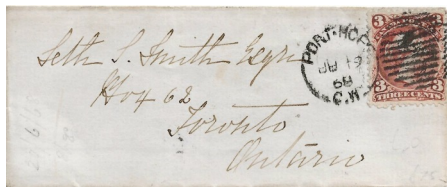 Seth S. Smith Esqre
Box 62
Toronto
Ontario
PORT HOPE
AP
68
3
3
3
THREE CENTS